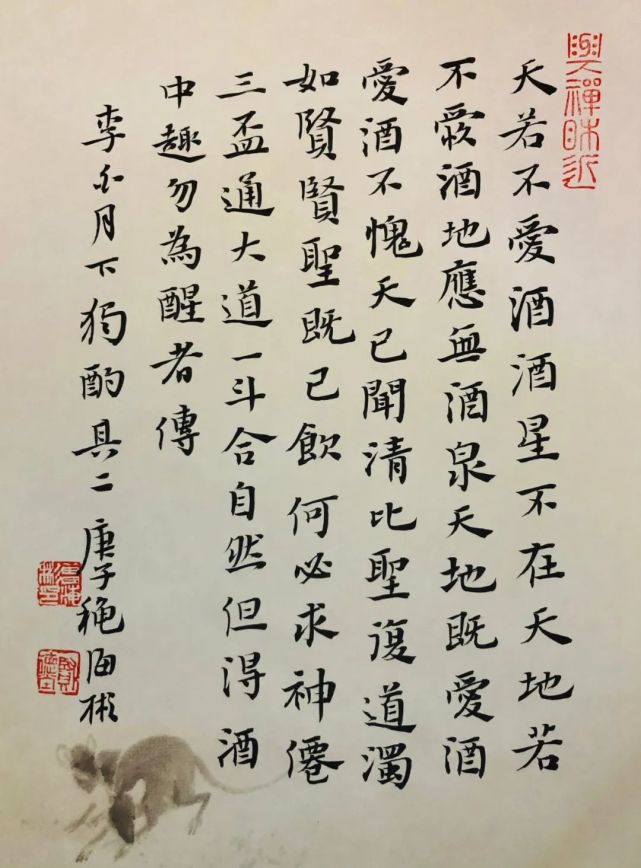 天若不愛酒酒星不在天地若
不愛酒地應無酒泉天地既愛酒
愛酒不愧天已聞清比聖復道濁
如賢賢聖既已飲何必求神僊
三盃通大道一斗合自然但得酒
中趣勿為醒者傳
李白月下獨酌其二 庚子穐海彬